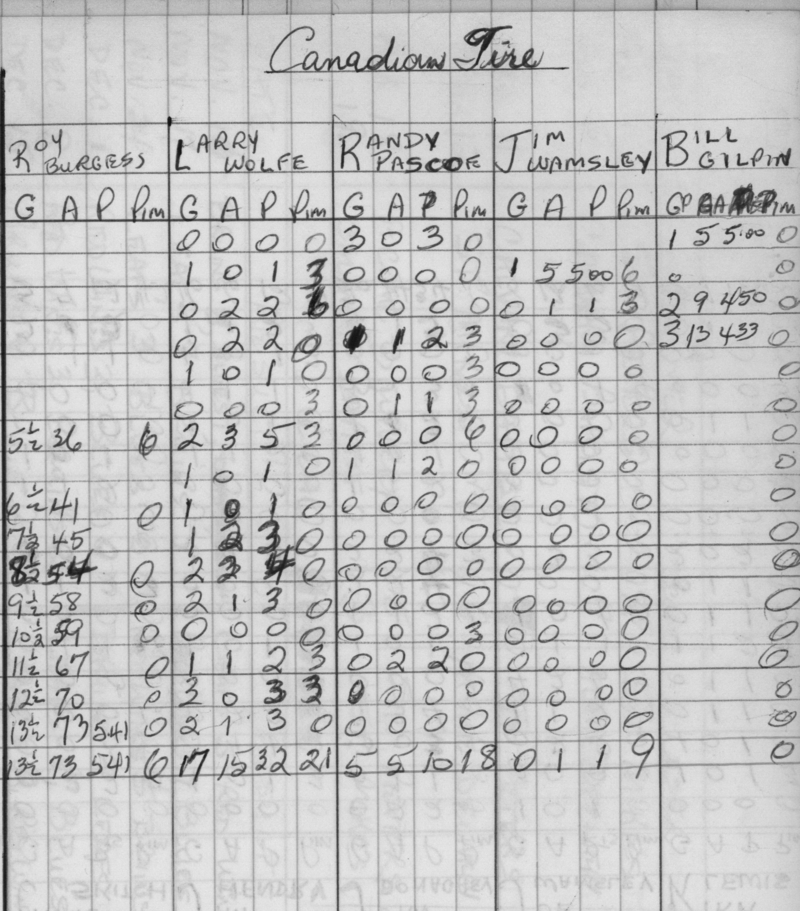 Canadian Tire
ROY BURGESS LARRY WOLFE RANDY PASCOE JIM WAMSLEY BILL GILPIN
G A P Pim G A P Pim G A P Pim G A P Pim GP GA Pim
0 0 0 0 3 0 3 0 1 5 5.00 0
1 0 1 3 0 0 0 0 1 5 5.00 6 0 0
0 2 2 6 0 0 0 0 0 1 1 3 2 9 450 0
0 2 2 0 1 1 2 3 0 0 0 0 3 13 433 0
1 0 1 0 0 0 0 3 0 0 0 0 0
0 0 0 3 0 1 1 3 0 0 0 0 0
5½ 36 6 2 3 5 3 0 0 0 6 0 0 0 0 0
1 0 1 0 1 1 2 0 0 0 0 0 0
6½ 41 0 1 0 1 0 0 0 0 0 0 0 0 0 0
7½ 45 1 2 3 0 0 0 0 0 0 0 0 0 0
8½ 54 0 2 2 4 0 0 0 0 0 0 0 0 0 0
9½ 58 0 2 1 3 0 0 0 0 0 0 0 0 0 0
10½ 59 0 0 0 0 0 0 0 0 3 0 0 0 0 0
11½ 67 0 1 1 2 3 0 2 2 0 0 0 0 0 0
12½ 70 0 3 0 3 3 0 0 0 0 0 0 0 0 0
13½ 73 541 0 2 1 3 0 0 0 0 0 0 0 0 0 0
13½ 73 541 6 17 15 32 21 5 5 10 18 0 1 1 9 0